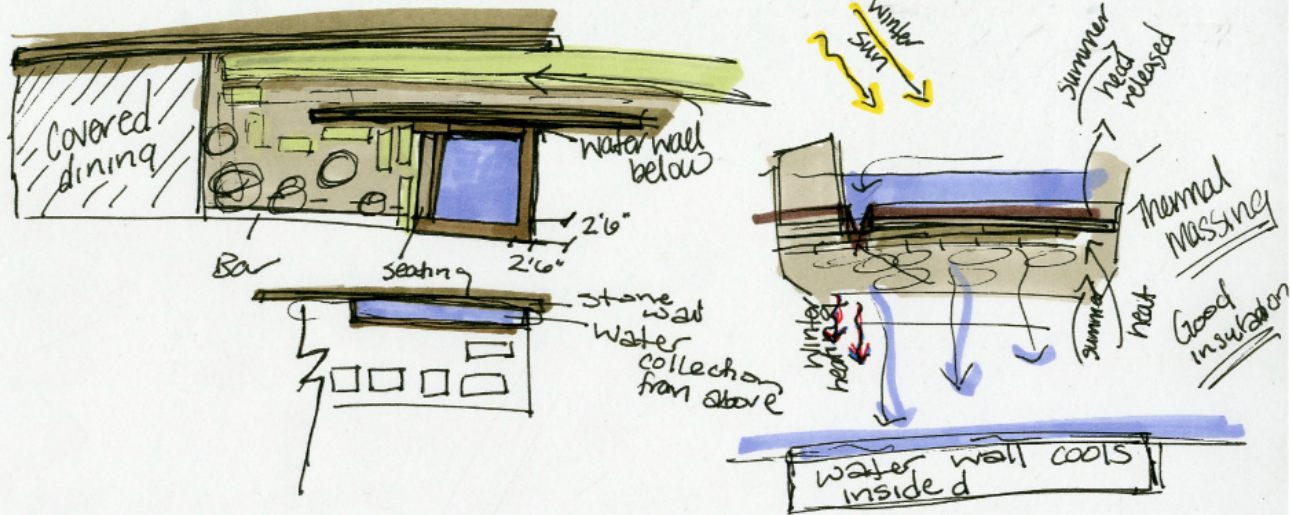 Covered
dining
Bar
seating
2'6"
2'6"
water wall
below
stone
wall
water
collection
from above
winter
sun
summer
heat
released
Thermal
Massing
Good
insulation
winter
heating
summer
heat
water wall cools
inside d